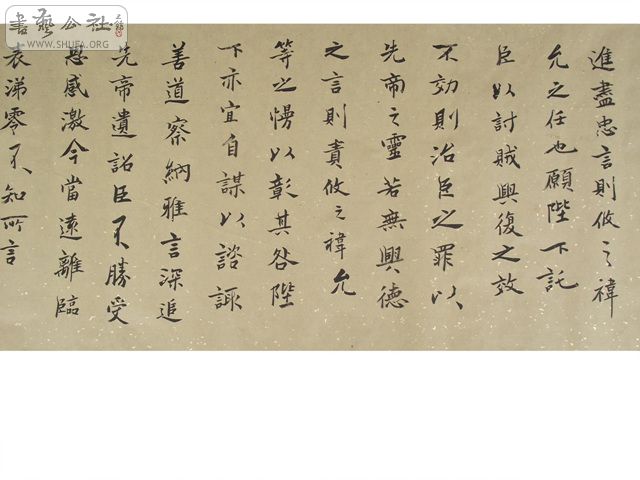 進盡忠言則攸之禕
允之任也願陛下託
臣以討賊興復之效
不効則治臣之罪以
先帝之靈若無興德
之言則責攸之禕允
等之慢以彰其咎陛
下亦宜自謀以諮諏
善道察納雅言深追
先帝遺詔臣不勝受
恩感激今當遠離臨
表涕零不知所言
書藝公社
WWW.SHUFA.ORG